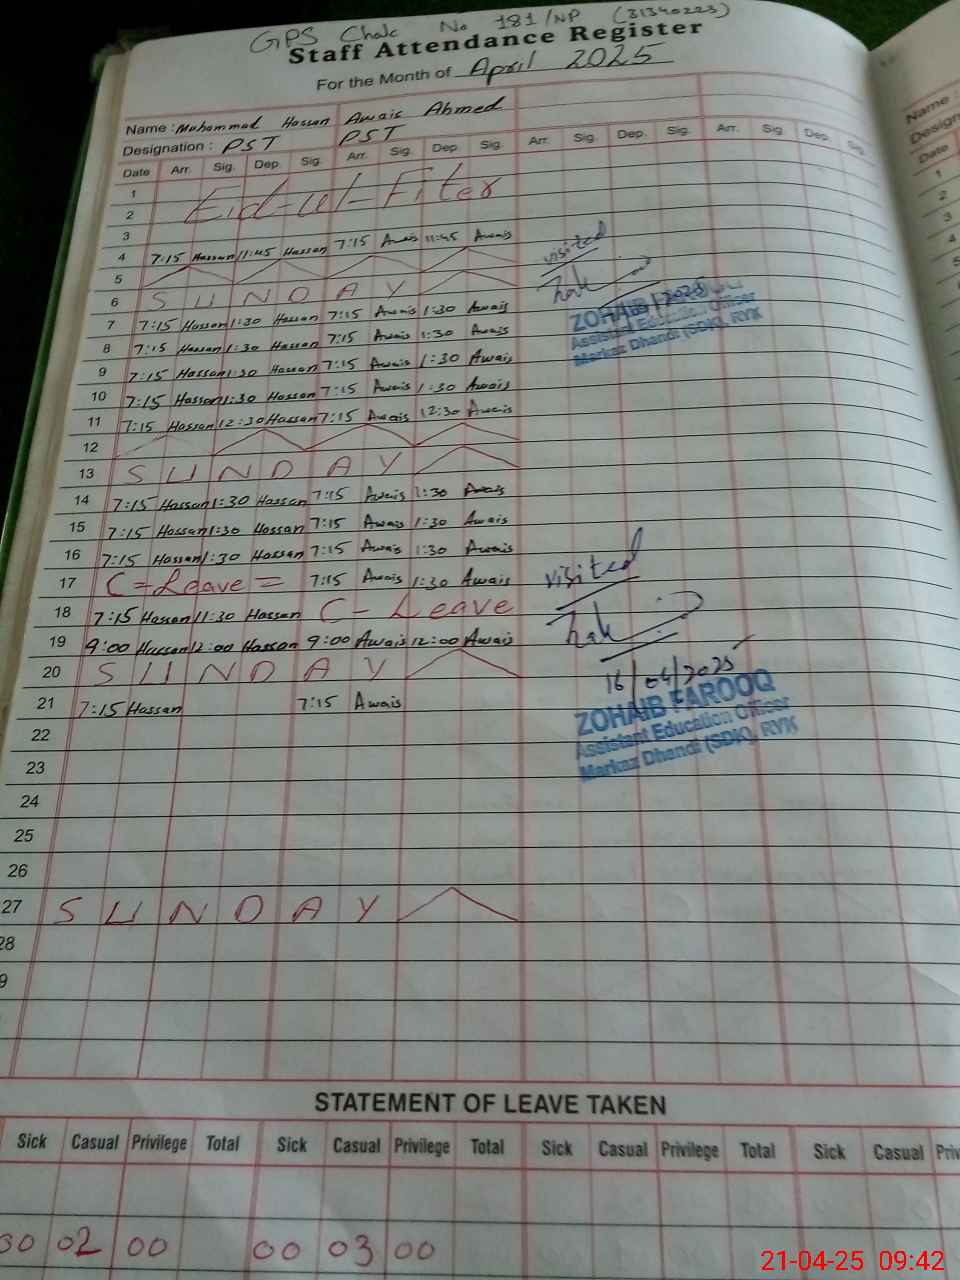 GPS Chak No 181/NP (31340223)
Staff Attendance Register
For the Month of April 2025
Name : Muhammad Hassan Awais Ahmed
Designation : PST PST
Date Arr. Sig. Dep. Sig. Arr. Sig. Dep. Sig. Arr. Sig. Dep. Sig. Arr. Sig. Dep. Sig.
1
2 Eid-ul-Fiter
3
4 7:15 Hassan 11:45 Hassan 7:15 Awais 11:45 Awais
5
6 SUNDAY
7 7:15 Hassan 1:30 Hassan 7:15 Awais 1:30 Awais
8 7:15 Hassan 1:30 Hassan 7:15 Awais 1:30 Awais
9 7:15 Hassan 1:30 Hassan 7:15 Awais 1:30 Awais
10 7:15 Hassan 1:30 Hassan 7:15 Awais 1:30 Awais
11 7:15 Hassan 12:30 Hassan 7:15 Awais 12:30 Awais
12
13 SUNDAY
14 7:15 Hassan 1:30 Hassan 7:15 Awais 1:30 Awais
15 7:15 Hassan 1:30 Hassan 7:15 Awais 1:30 Awais
16 7:15 Hassan 1:30 Hassan 7:15 Awais 1:30 Awais
17 C-Leave = 7:15 Awais 1:30 Awais
18 7:15 Hassan 11:30 Hassan C-Leave
19 9:00 Hassan 12:00 Hassan 9:00 Awais 12:00 Awais
20 SUNDAY
21 7:15 Hassan 7:15 Awais
22
23
24
25
26
27 SUNDAY
28
9
visited
ZOHAIB
Assistant Education Officer
Markaz Dhandi (SDK), RYK
visited
16/04/2025
ZOHAIB FAROOQ
Assistant Education Officer
Markaz Dhandi (SDK), RYK
STATEMENT OF LEAVE TAKEN
Sick Casual Privilege Total Sick Casual Privilege Total Sick Casual Privilege Total Sick Casual Priv
02 00 00 03 00
Name :
Design
Date
1
2
3
4
5
21-04-25 09:42